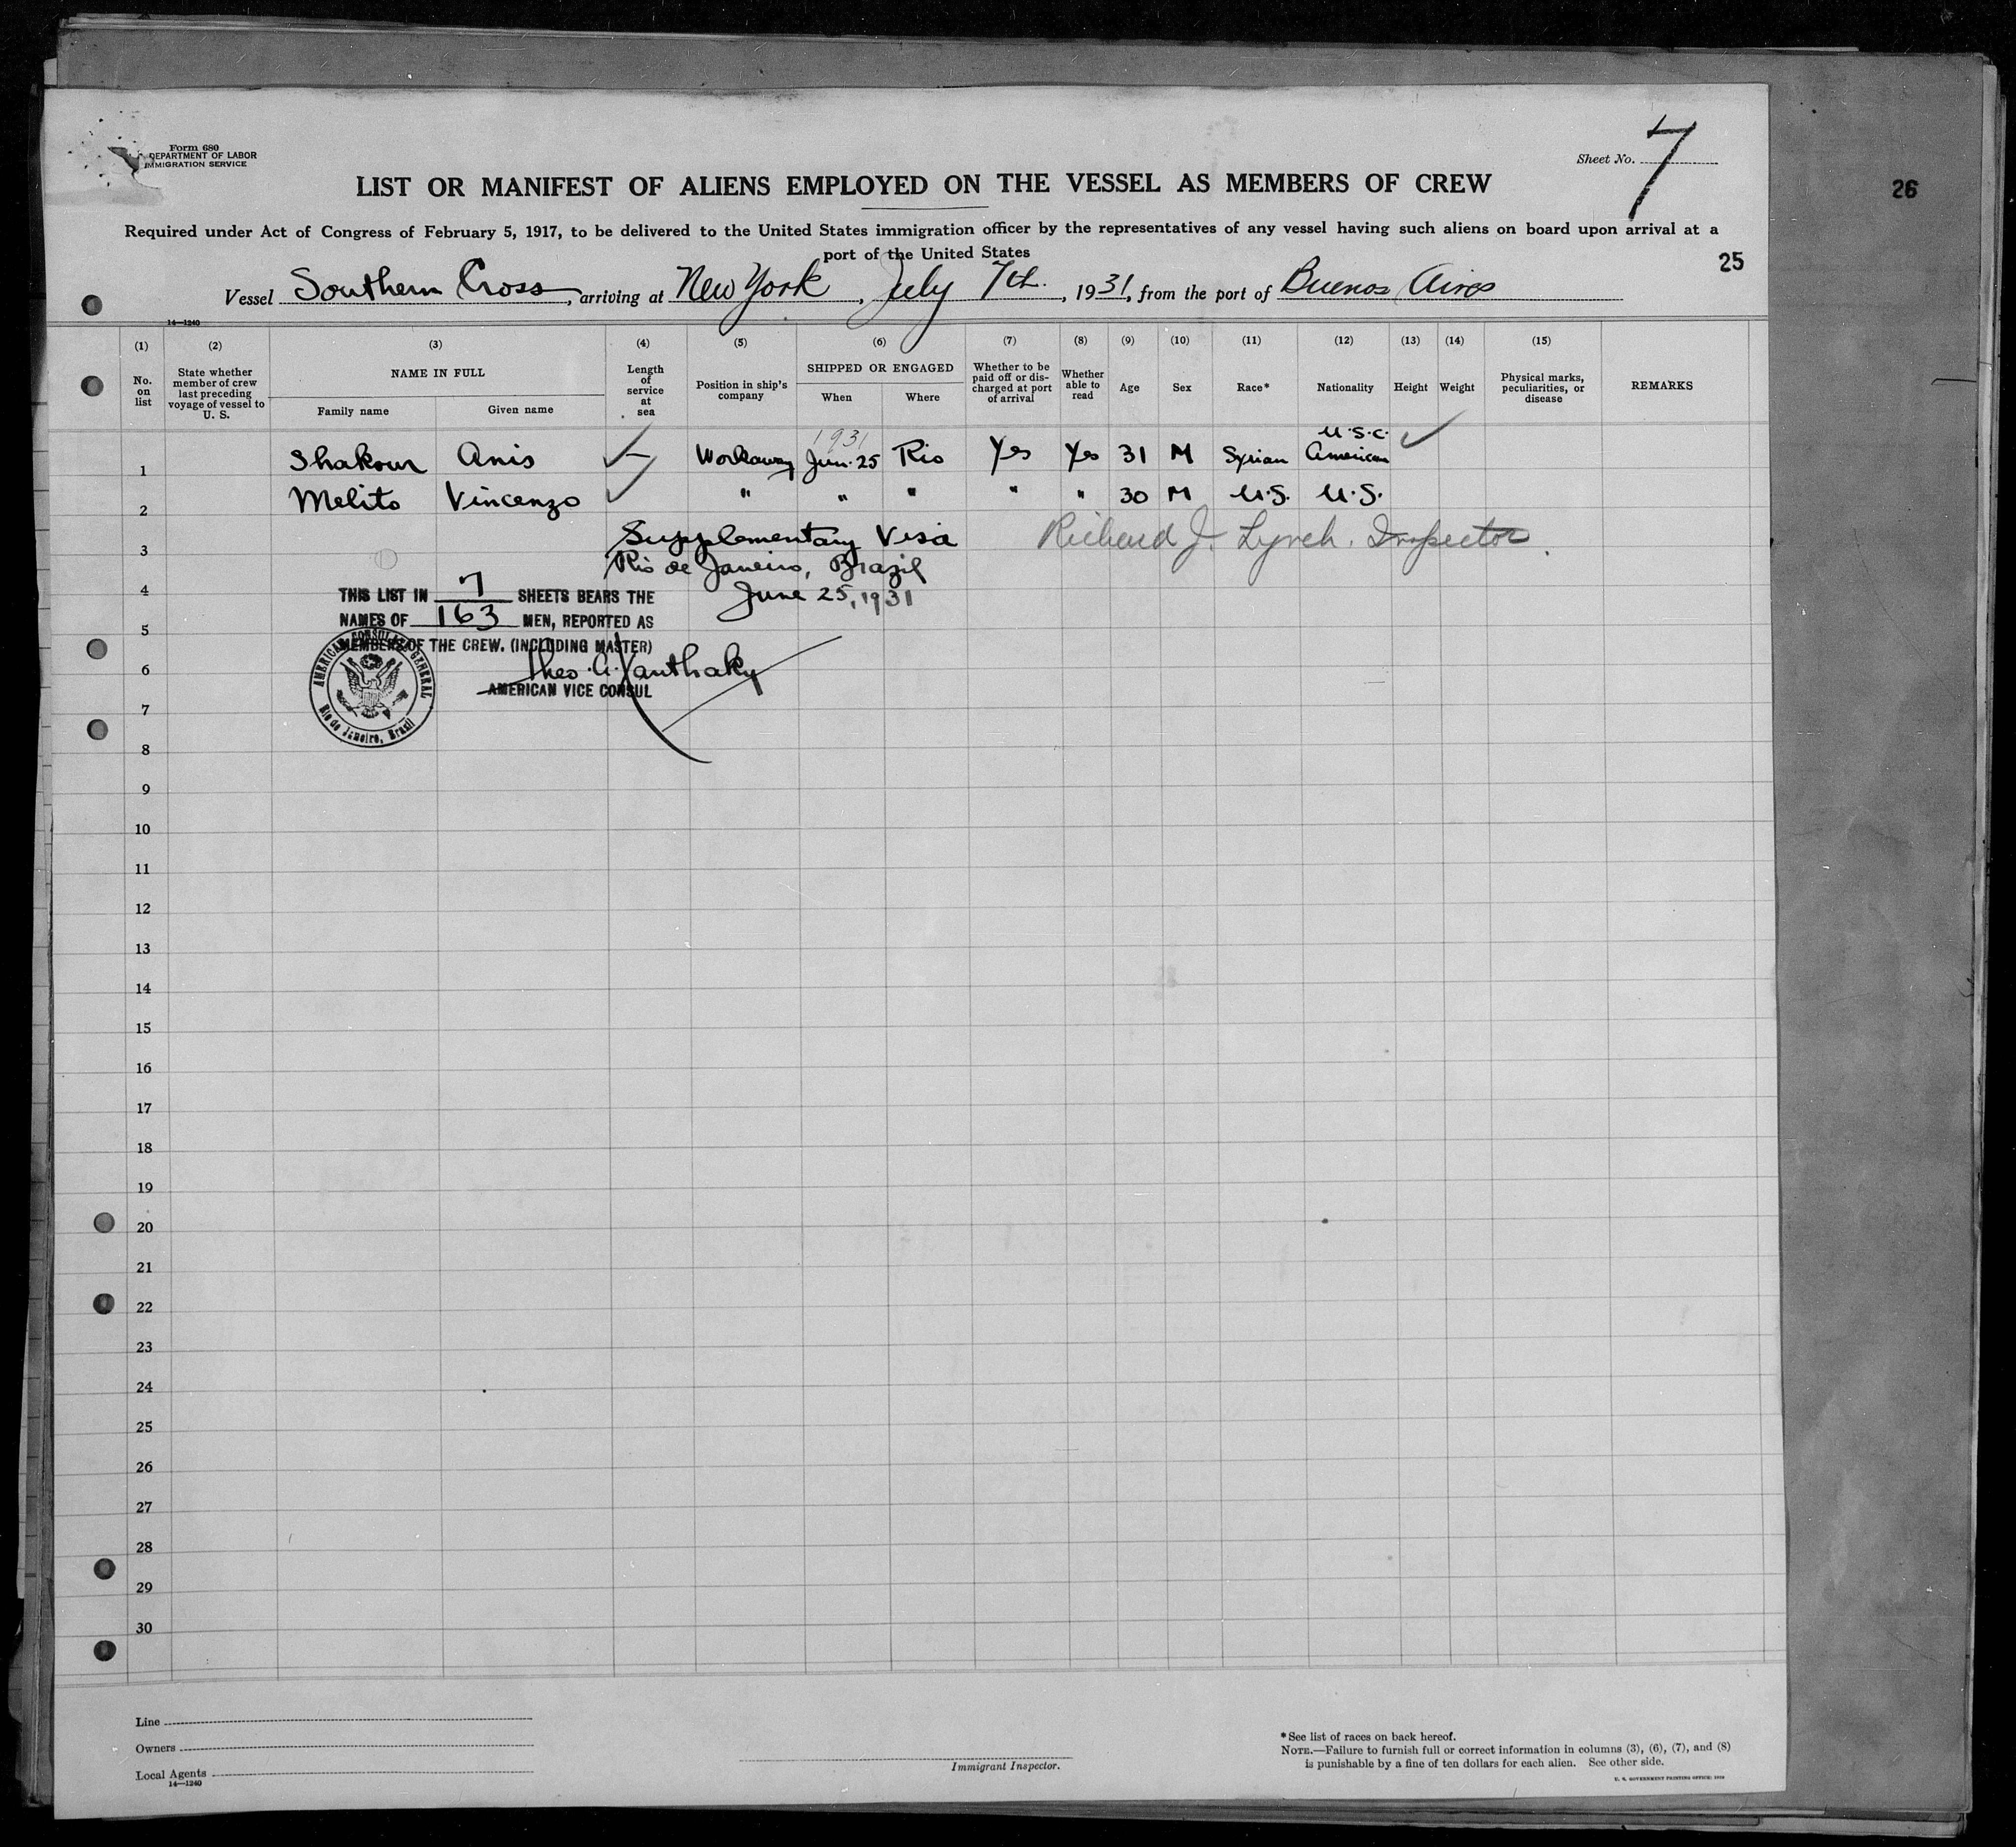 Form 680
DEPARTMENT OF LABOR
IMMIGRATION SERVICE
Sheet No. 7
26
LIST OR MANIFEST OF ALIENS EMPLOYED ON THE VESSEL AS MEMBERS OF CREW
Required under Act of Congress of February 5, 1917, to be delivered to the United States immigration officer by the representatives of any vessel having such aliens on board upon arrival at a
port of the United States
25
Vessel Southern Cross, arriving at New York, July 7th., 1931, from the port of Buenos Aires
14—1240
(1) (2) (3) (4) (5) (6) (7) (8) (9) (10) (11) (12) (13) (14) (15)
No. on list
State whether member of crew last preceding voyage of vessel to U. S.
NAME IN FULL
Family name Given name
Length of service at sea
Position in ship's company
SHIPPED OR ENGAGED
When Where
Whether to be paid off or discharged at port of arrival
Whether able to read
Age
Sex
Race*
Nationality
Height
Weight
Physical marks, peculiarities, or disease
REMARKS
1931 U.S.C.
1 Shakour Anis Workaway Jun. 25 Rio Yes Yes 31 M Syrian American
2 Melito Vincenzo " " " " " 30 M U.S. U.S.
3 Supplementary Visa Richard J. Lynch. Inspector.
Rio de Janeiro, Brazil
4 THIS LIST IN 7 SHEETS BEARS THE June 25, 1931
NAMES OF 163 MEN, REPORTED AS
5 MEMBERS OF THE CREW. (INCLUDING MASTER)
6 Theo. A. Xanthaky
AMERICAN VICE CONSUL
AMERICAN CONSULATE GENERAL
Rio de Janeiro, Brasil
7
8
9
10
11
12
13
14
15
16
17
18
19
20
21
22
23
24
25
26
27
28
29
30
Line
Owners
Local Agents
14—1240
Immigrant Inspector.
*See list of races on back hereof.
NOTE.—Failure to furnish full or correct information in columns (3), (6), (7), and (8)
is punishable by a fine of ten dollars for each alien. See other side.